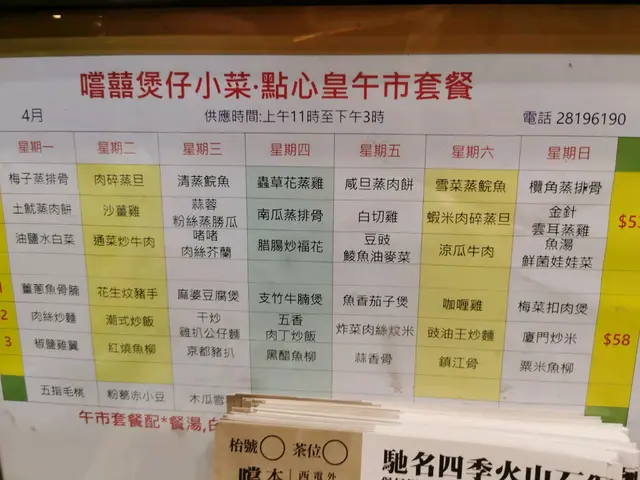 嚐囍煲仔小菜·點心皇午市套餐
4月 供應時間:上午11時至下午3時 電話 28196190
星期一 星期二 星期三 星期四 星期五 星期六 星期日
梅子蒸排骨 肉碎蒸旦 清蒸鯇魚 蟲草花蒸雞 咸旦蒸肉餅 雪菜蒸鯇魚 欖角蒸排骨
土魷蒸肉餅 沙薑雞 蒜蓉粉絲蒸勝瓜 南瓜蒸排骨 白切雞 蝦米肉碎蒸旦 金針雲耳蒸雞
油鹽水白菜 通菜炒牛肉 啫啫肉絲芥蘭 腊腸炒福花 豆豉鯪魚油麥菜 涼瓜牛肉 魚湯鮮菌娃娃菜
薑蔥魚骨腩 花生炆豬手 麻婆豆腐煲 支竹牛腩煲 魚香茄子煲 咖喱雞 梅菜扣肉煲
2 肉絲炒麵 潮式炒飯 干炒雞扒公仔麵 五香肉丁炒飯 炸菜肉絲炆米 豉油王炒麵 廈門炒米 $58
3 椒鹽雞翼 紅燒魚柳 京都豬扒 黑醋魚柳 蒜香骨 鎮江骨 粟米魚柳
五指毛桃 粉葛赤小豆 木瓜雪
午市套餐配*餐湯,白
枱號 茶位
馳名四季火山石